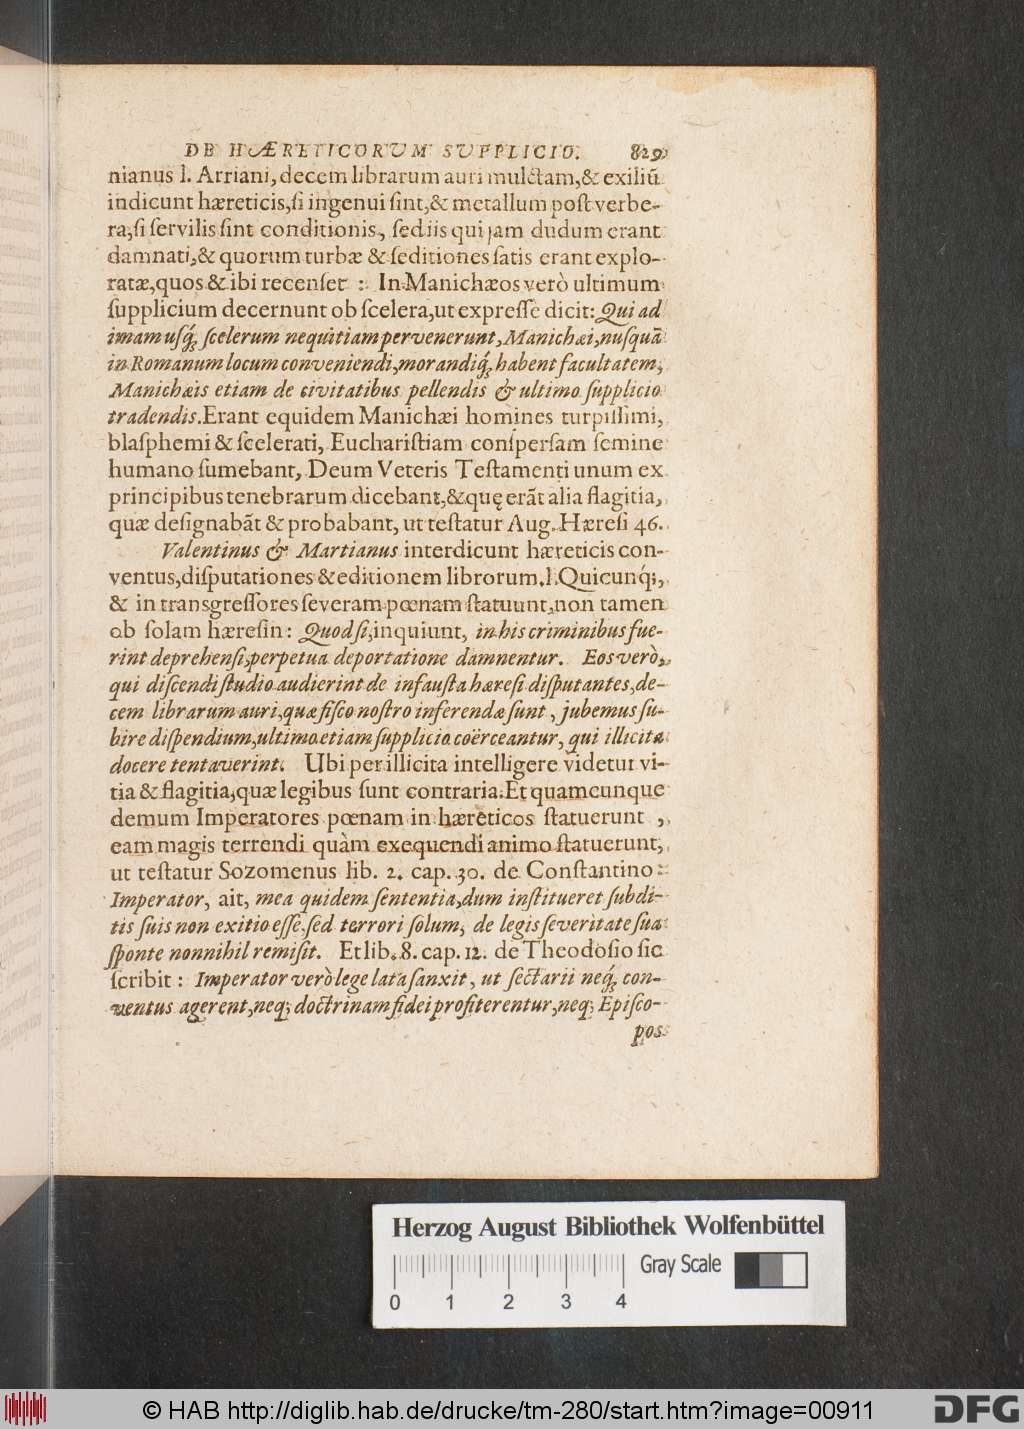 DE HÆRETICORUM SUPPLICIO. 829
nianus l. Arriani, decem librarum auri mulctam, & exiliũ
indicunt hæreticis, ſi ingenui ſint, & metallum poſt verbe-
ra, ſi ſervilis ſint conditionis, ſed iis qui jam dudum erant
damnati, & quorum turbæ & ſeditiones ſatis erant explo-
ratæ, quos & ibi recenſet : In Manichæos verò ultimum
ſupplicium decernunt ob ſcelera, ut expreſſe dicit: Qui ad
imam uſq́; ſcelerum nequitiam pervenerunt, Manichæi, nuſquã
in Romanum locum conveniendi, morandiq́; habent facultatem,
Manichæis etiam de civitatibus pellendis & ultimo ſupplicio
tradendis. Erant equidem Manichæi homines turpiſſimi,
blaſphemi & ſcelerati, Euchariſtiam conſperſam ſemine
humano ſumebant, Deum Veteris Teſtamenti unum ex
principibus tenebrarum dicebant, & quę erãt alia flagitia,
quæ deſignabãt & probabant, ut teſtatur Aug. Hæreſi 46.
Valentinus & Martianus interdicunt hæreticis con-
ventus, diſputationes & editionem librorum. l. Quicunq́;,
& in transgreſſores ſeveram pœnam ſtatuunt, non tamen
ob ſolam hæreſin: Quod ſi, inquiunt, in his criminibus fue-
rint deprehenſi, perpetua deportatione damnentur. Eos verò,
qui diſcendi ſtudio audierint de infauſta hæreſi diſputantes, de-
cem librarum auri, quæ fiſco noſtro inferendæ ſunt, jubemus ſu-
bire diſpendium, ultimo etiam ſupplicio coërceantur, qui illicita
docere tentaverint. Ubi per illicita intelligere videtur vi-
tia & flagitia, quæ legibus ſunt contraria. Et quamcunque
demum Imperatores pœnam in hæreticos ſtatuerunt ,
eam magis terrendi quàm exequendi animo ſtatuerunt,
ut teſtatur Sozomenus lib. 2. cap. 30. de Conſtantino :
Imperator, ait, mea quidem ſententia, dum inſtitueret ſubdi-
tis ſuis non exitio eſſe, ſed terrori ſolum, de legis ſeveritate ſua
ſponte nonnihil remiſit. Et lib. 8. cap. 12. de Theodoſio ſic
ſcribit : Imperator verò lege lata ſanxit, ut ſectarii neq́; con-
ventus agerent, neq; doctrinam fidei profiterentur, neq; Epiſco-
pos
Herzog August Bibliothek Wolfenbüttel
Gray Scale
0 1 2 3 4
© HAB http://diglib.hab.de/drucke/tm-280/start.htm?image=00911
DFG